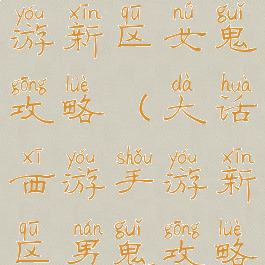 yóu xīn qū nǚ guǐ
游新区女鬼
gōng lüè dà huà
攻略(大话
xī yóu shǒu yóu xīn
西游手游新
qū nán guǐ gōng lüè
区男鬼攻略